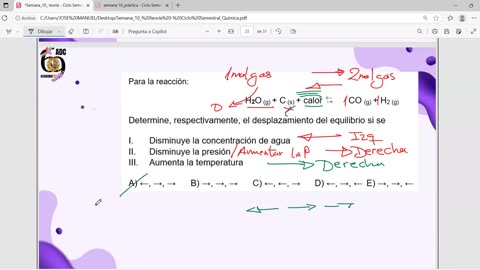 *Semana_10_ teoría - Ciclo Seme
semana 10_práctica - Ciclo Semes
Archivo
C:/Users/JOSE%20MANUEL/Desktop/Semana_10_%20teoría%20-%20Ciclo%20Semestral_Química.pdf
Dibujar
Pregunta a Copilot
21
de 25
ADC
1mol gas → 2mol gas
Para la reacción:
0 ← H₂O (g) + C (s) + calor ⇆ 1 CO (g) + 1 H₂ (g)
Determine, respectivamente, el desplazamiento del equilibrio si se
I. Disminuye la concentración de agua ← Izq
II. Disminuye la presión / Aumentar la P → Derecha
III. Aumenta la temperatura → Derecha
A) ←, →, → B) →, →, → C) ←, ←, → D) ←, →, ← E) →, →, ←
← → →